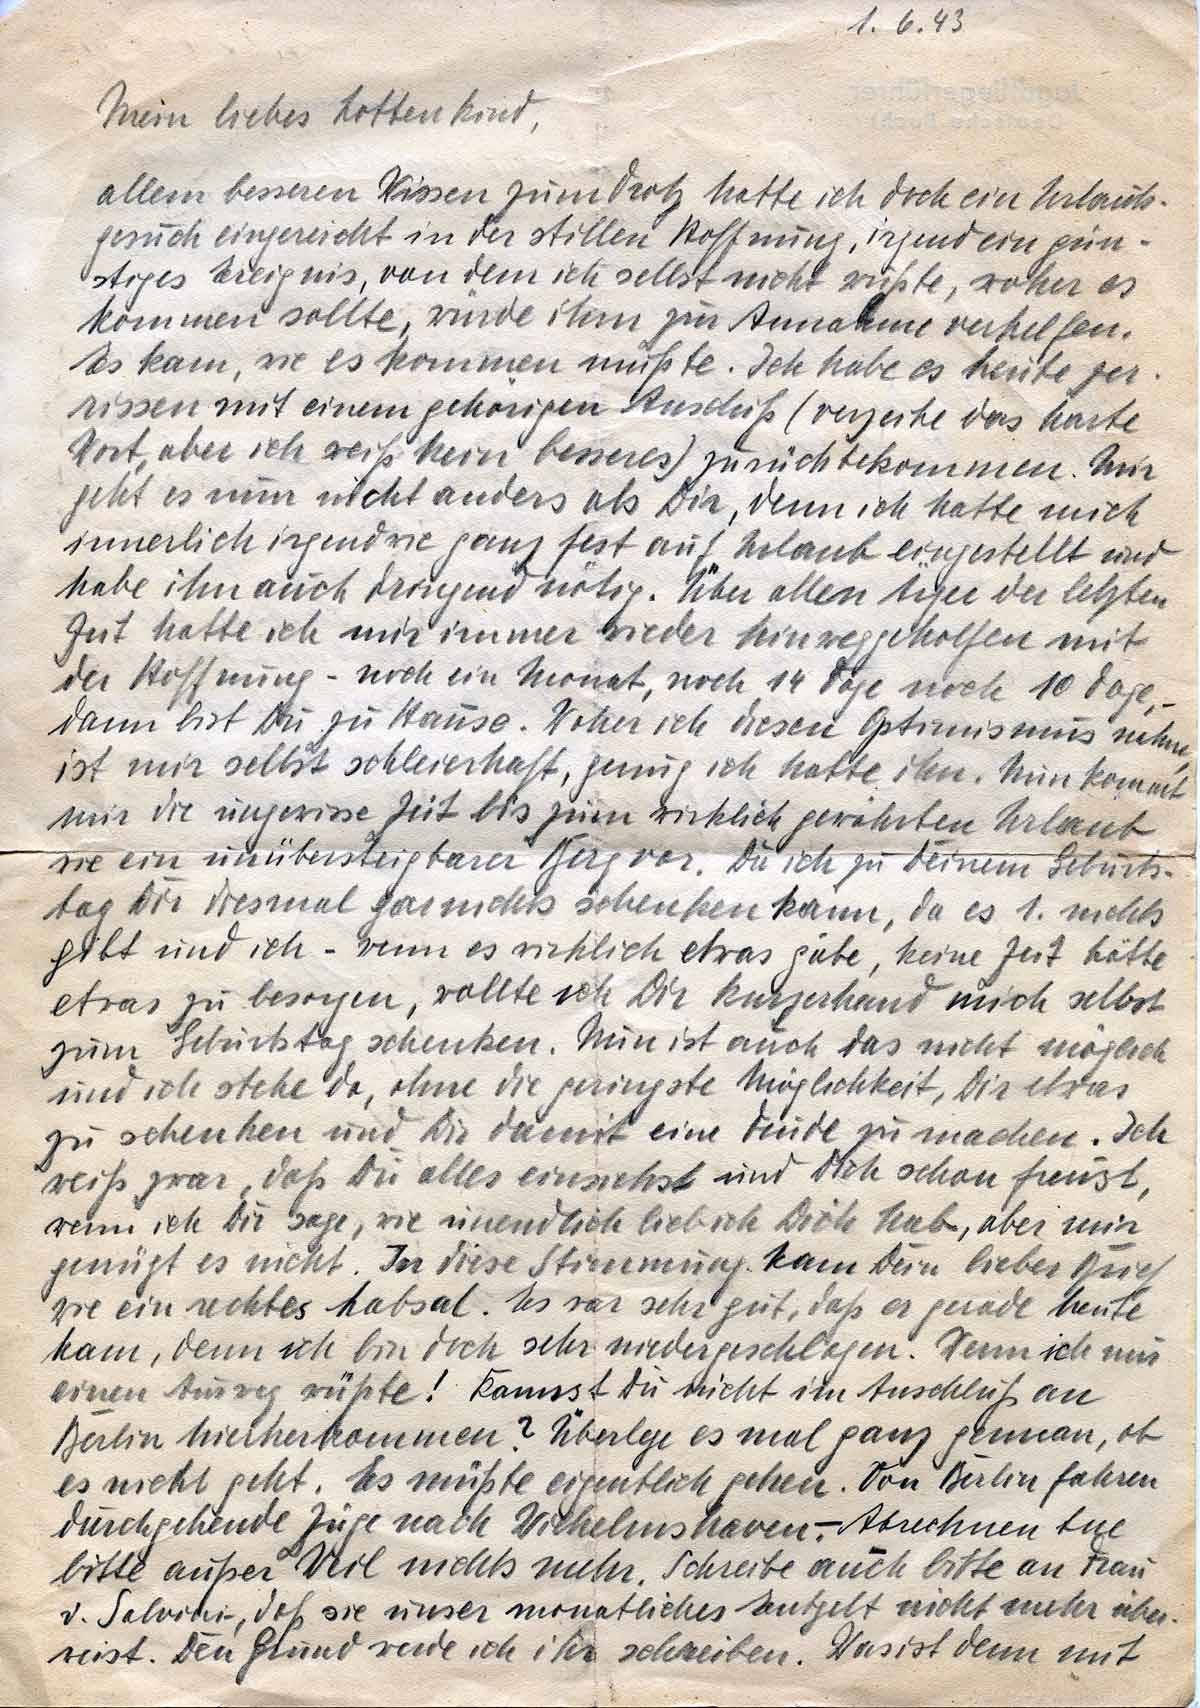 1. 6. 43
Mein liebes Lottenkind,
allem besseren Wissen zum Trotz hatte ich doch ein Urlaubs-
gesuch eingereicht in der stillen Hoffnung, irgend ein gün-
stiges Ereignis, von dem ich selbst nicht wüßte, woher es
kommen sollte, würde ihm zur Annahme verhelfen.
Es kam, wie es kommen mußte. Ich habe es heute zer-
rissen mit einem gehörigen Anschiß (verzeihe das harte
Wort, aber ich weiß kein besseres) zurückbekommen. Mir
geht es nun nicht anders als Dir, denn ich hatte mich
innerlich irgendwie ganz fest auf Urlaub eingestellt und
habe ihn auch dringend nötig. Über allen Ärger der letzten
Zeit hatte ich mir immer wieder hinweggeholfen mit
der Hoffnung - noch ein Monat, noch 14 Tage noch 10 Tage, -
dann bist Du zu Hause. Woher ich diesen Optimismus nahm,
ist mir selbst schleierhaft, genug ich hatte ihn. Nun kommt
mir die ungewisse Zeit bis zum wirklich gewährten Urlaub
wie ein unübersteigbarer Berg vor. Da ich zu Deinem Geburts-
tag Dir diesmal garnichts schenken kann, da es 1. nichts
gibt und ich - wenn es wirklich etwas gäbe, keine Zeit hätte
etwas zu besorgen, wollte ich Dir kurzerhand mich selbst
zum Geburtstag schenken. Nun ist auch das nicht möglich
und ich stehe da, ohne die geringste Möglichkeit, Dir etwas
zu schenken und Dir damit eine Freude zu machen. Ich
weiß zwar, daß Du alles einsiehst und Dich schon freust,
wenn ich Dir sage, wie unendlich lieb ich Dich hab, aber mir
genügt es nicht. In diese Stimmung kam Dein lieber Brief
wie ein rechtes Labsal. Es war sehr gut, daß er gerade heute
kam, denn ich bin doch sehr niedergeschlagen. Wenn ich nur
einen Ausweg wüßte! Kannst Du nicht im Anschluß an
Berlin hierherkommen? Überlege es mal ganz genau, ob
es nicht geht. Es müßte eigentlich gehen. Von Berlin fahren
durchgehende Züge nach Wilhelmshaven. - Abrechnen tue
bitte außer Weil nichts mehr. Schreibe auch bitte an Frau
v. Salvini, daß sie unser monatliches Entgelt nicht mehr über-
weist. Den Grund werde ich ihr schreiben. Was ist denn mit